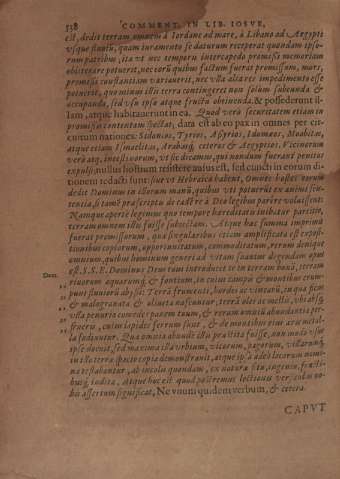 538 COMMENT. IN LIB. IOSVE,
est, dedit terram omnem à Iordane ad mare, à Libano ad Aegypti
vsque fluuiũ, quam iuramento se daturum receperat quondam ipso-
rum patribus, ita vt nec temporis intercapedo promissi memoriam
obliterare potuerit, nec eorũ quibus factum fuerat promissum, mors,
promissi constantiam verterit, nec vlla alia res impedimento esse
potuerit, quominus illi terra contingeret non solum subeunda &
occupanda, sed vsu ipso atque fructu obtinenda. & possederunt il-
lam, atque habitauerunt in ea. Quod verò securitatem etiam in
promissis contentam spectat, data est ab eo pax in omnes per cir-
cuitum nationes. Sidonios, Tyrios, Assyrios, Idumæos, Moabitas,
atque etiam Ismaelitas, Arabas, ceteros & Aegyptios. Vicinorum
verò atq. intestinorum, vt sic dicamus, qui nondum fuerant penitus
expulsi, nullus hostium resistere ausus est, sed cuncti in eorum di-
tionem redacti sunt: siue vt Hebraica habent, Omnes hostes eorum
dedit Dominus in illorum manũ, quibus vti potuerũt ex animi sen-
tentia, si tamẽ præscripto de cædere à Deo legibus parere voluissent.
Namque apertè legimus quo tempore hæreditatis initæ partitio,
terram omnem illis fuisse subiectam. Atque hæc summa imprimis
fuerat promissorum, singularibus etiam amplificata & exposi-
tionibus copiarum, opportunitatum, commoditatum, rerum denique
omnium, quibus hominum generi ad vitam suauiter degendam opus
est. S. S. E. Dominus Deus tuus introducet te in terram bonã, terram
Deut. riuorum aquarumq. & fontium, in cuius campis & montibus erum-
punt fluuiorũ abyssi: Terrã frumenti, hordei ac vinearũ, in qua ficus
& malogranata & oliueta nascuntur, terrã olei ac mellis, vbi absq.
vlla penuria comedes panem tuum, & rerum omniũ abundantia per-
frueris, cuius lapides ferrum sunt, & de montibus eius æris metal-
la fodiuntur. Quæ omnia abunde illis præstita fuisse, non modò vsus
ipse docuit, sed maxima illa vrbium, vicorum, pagorum, villarumq.
in illis terræ spectio copia demonstrauit, atque ipsa adeò locorum nomi-
na testabantur, ab incolis quondam, ex natura situ, ingenio, fructi-
busq. indita. Atque hoc est quod postremus lectionis versiculus no-
bis assertum significat, Ne vnum quidem verbum, & cetera.
CAPVT